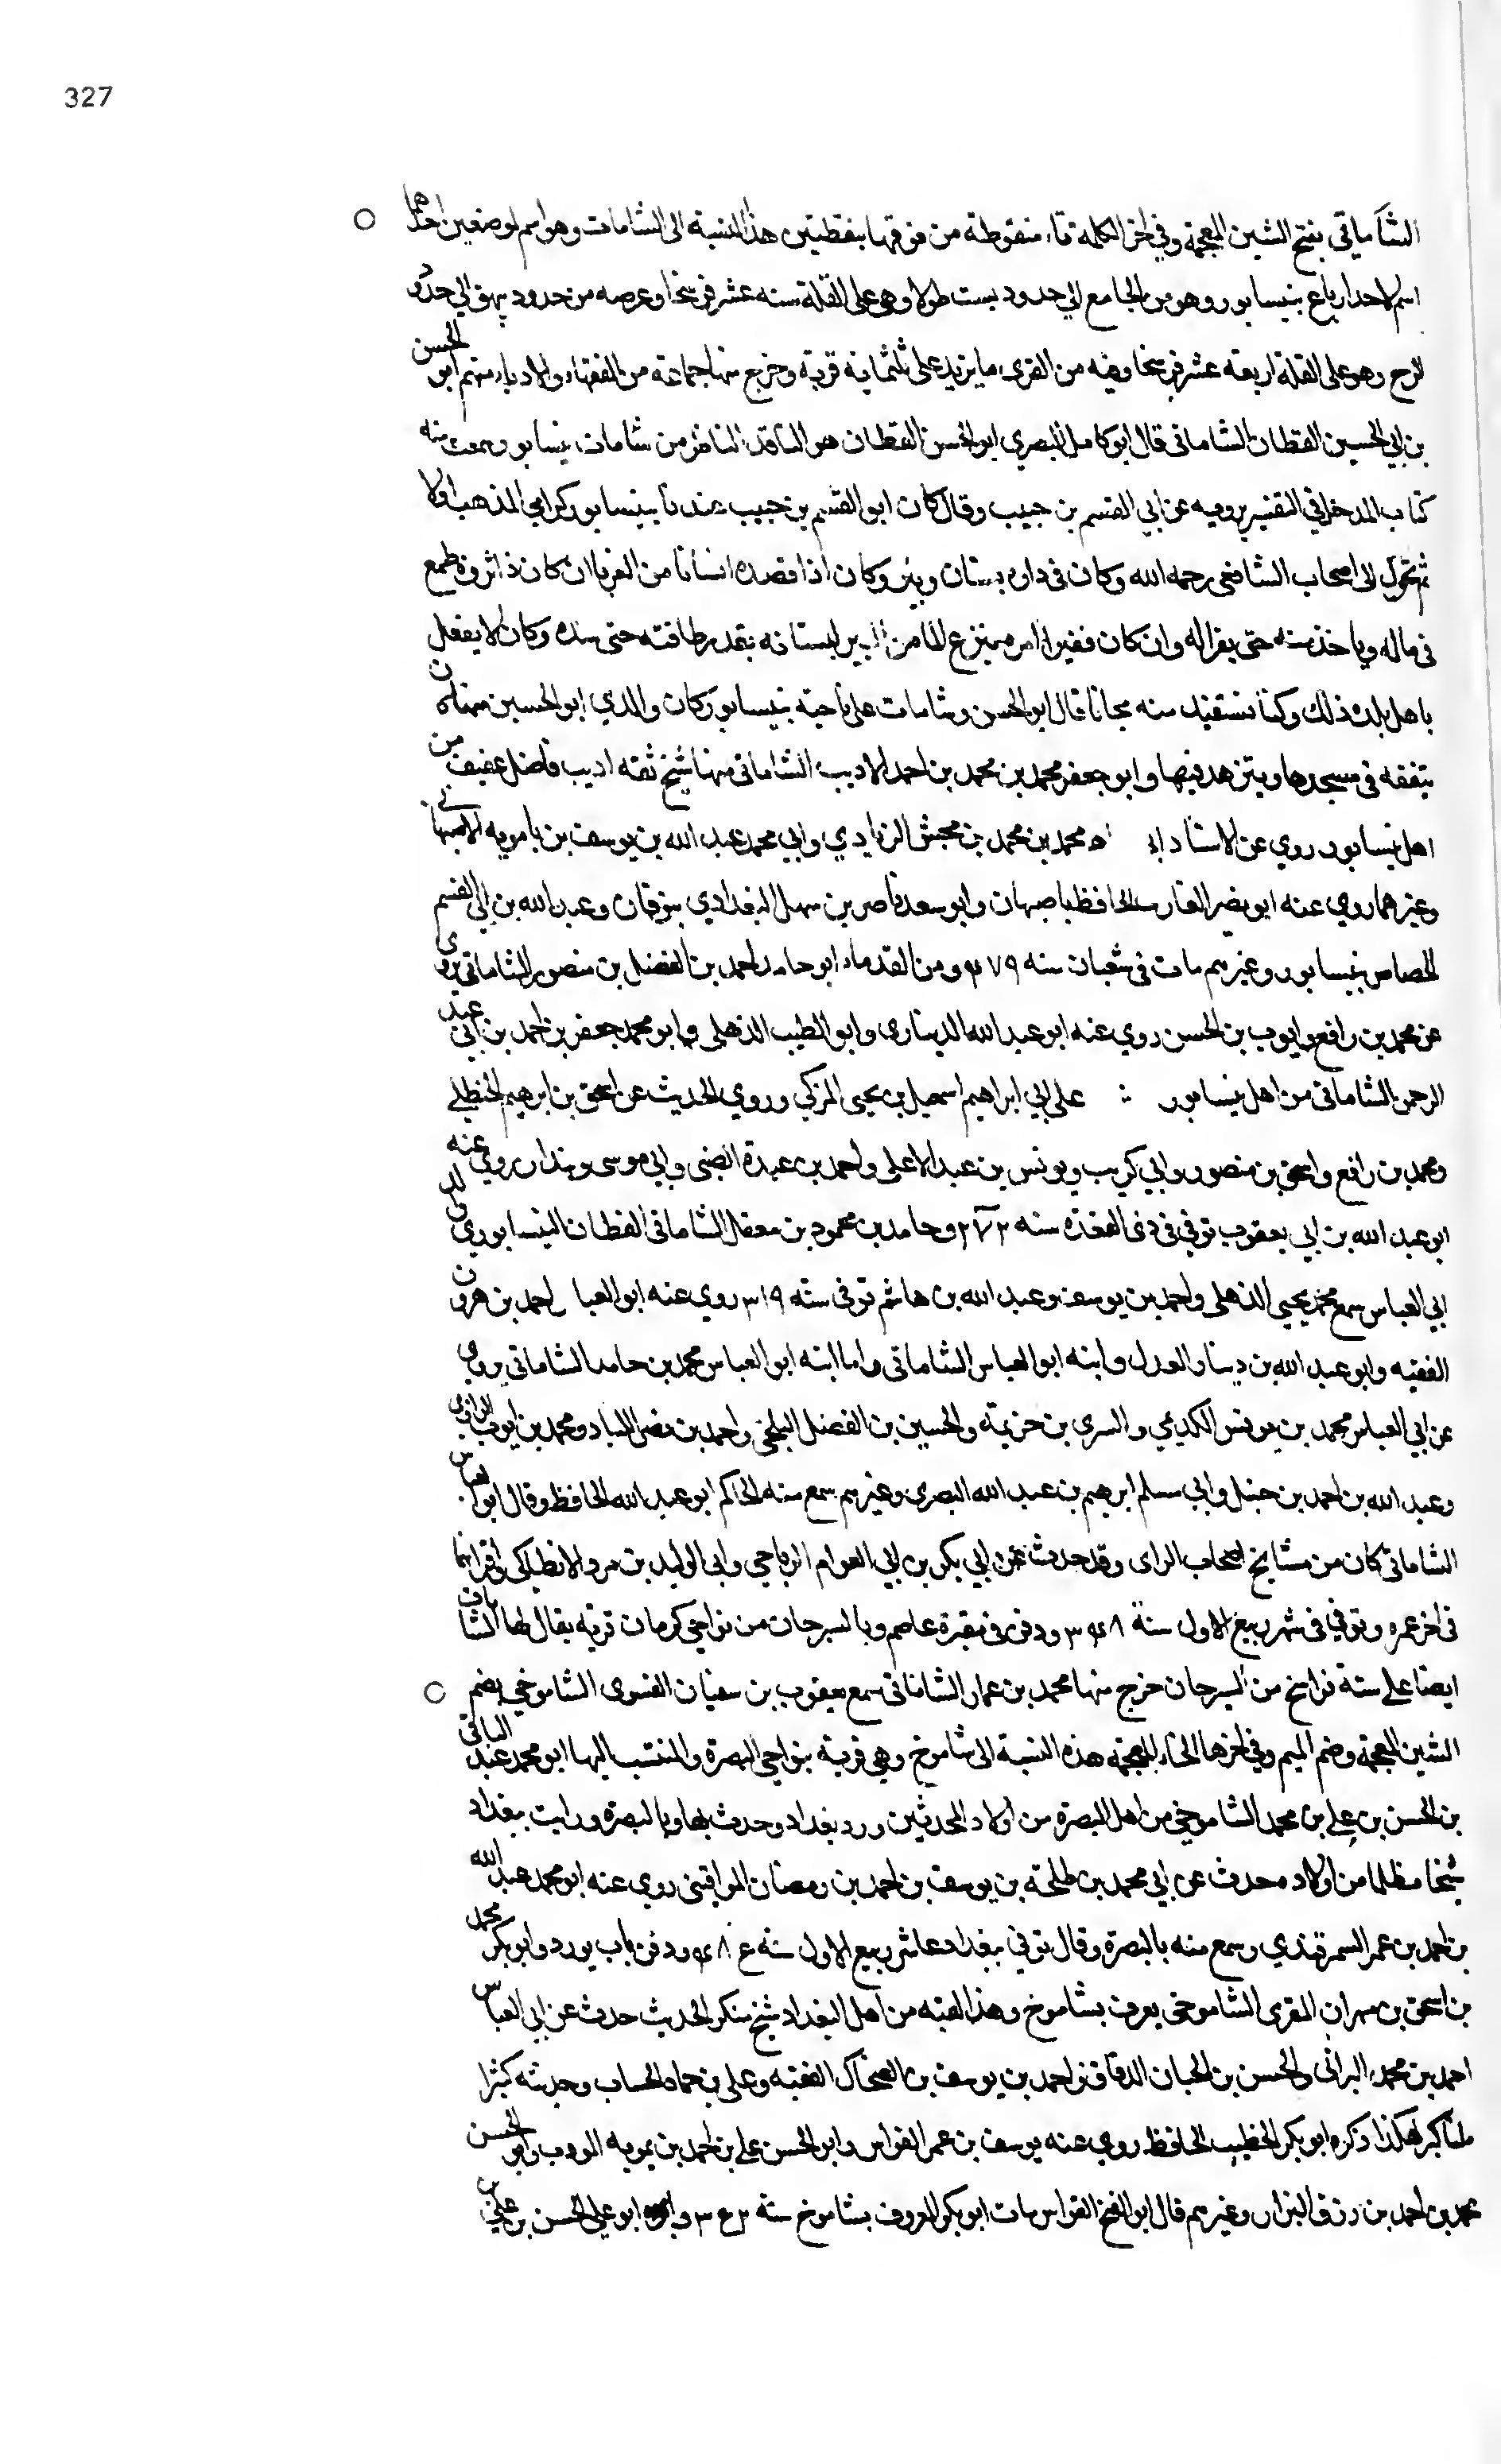 327
الشاماتي بفتح الشين المعجمة وفي اخر الكلمة تاء منقوطة من فوقها بنقطتين هذا النسبة الى الشامات وهو اسم لموضعين احدهما
اسم لاحد ارباع نيسابور وهو من الجامع الى حدود بست طولا وهي على القلة ستة عشر فرسخا وعرضه من حدود بيهق الى حدود
الرخ وهو على القلة اربعة عشر فرسخا وفيه من القرى ما يزيد على ثلثماية قرية وخرج منها جماعة من الفقهاء والادباء منهم ابو الحسن
بن ابي الحسين القطان الشاماتي قال ابو كامل البصري ابو الحسن القطان هو الناقد الناظر من شامات نيسابور سمعت منه
كتاب المدخل في التفسير يرويه عن ابي القسم بن حبيب وقال كان ابو القسم بن حبيب عندنا بنيسابور كرامي المذهب اولا
ثم تحول الى اصحاب الشافعي رحمه الله وكان في داره بستان وبئر وكان اذا قصده انسانا من الغربا ان كان ذا ثروة طمع
في ماله وياخذ منه حتى يقرا له وان كان فقيرا امر بنزع الما من البير لبستانه بقدر طاقته حتى وكان لا يفعل
باهل بلده ذلك وكنا نستفيد منه مجانا قال ابو الحسن وشامات على ناحية نيسابور كان والدي ابو الحسين
يتفقه في مسجدها ويتزهد فيها وابو جعفر محمد بن محمد بن احمد الاديب الشاماتي منها شيخ ثقة اديب فاضل عفيف من
اهل نيسابور روى عن الاستاد محمد بن محمد بن محمش الزيادي وابي محمد عبد الله بن يوسف بن بامويه الاصبهاني
وغيرهما روى عنه ابو نصر الحافظ باصبهان وابو سعد ناصر بن سهل البغدادي بنوقان وعبد الله بن ابي القسم
الحصاص بنيسابور وغيرهم مات في شعبان سنه ٤٧٩ ومن القدماء ابو حامد احمد بن الفضل بن منصور الشاماتي يروى
عن محمد بن رافع وايوب بن الحسن روي عنه ابو عبد الله الديناري وابو الطيب الذهلي وابو محمد جعفر بن احمد بن ابي عبد
الرحمن الشاماتي من اهل نيسابور على ابي ابراهيم اسمعيل بن يحيى المزكي وروي الحديث عن اسحق بن ابرهيم الحنظلي
ومحمد بن رافع واسحق بن منصور وابي كريب ويونس بن عبد الاعلى واحمد بن عبدة الضبي وابي موسى وبندار روى عنه
ابو عبد الله بن ابي يعقوب توفي في ذي القعدة سنه وحامد بن محمود بن معقل الشاماتي القطان النيسابوري والد
ابي العباس سمع محمد يحيى الذهلي واحمد بن يوسف وعبد الله بن هاشم توفي سنة ٣١٩ روي عنه ابو العبا احمد بن هرون
الفقيه وابو عبد الله بن دينار العدل وابنه ابو العباس الشاماتي واما ابنه ابو العباس محمد بن حامد الشاماتي يروى
عن ابي العباس محمد بن يونس الكديمي والسري بن خزيمة والحسين بن الفضل البلخي واحمد بن نصر اللباد ومحمد بن ايوب الرازي
وعبد الله بن احمد بن حنبل وابي مسلم ابرهيم بن عبد الله البصري وغيرهم سمع منه الحاكم ابو عبد الله الحافظ وقال ابو العباس
الشاماتي كان من مشايخ اصحاب الراى وقد حدث عن ابي بكر بن ابي العوام الرياحي وابي الوليد بن برد الانطاكي واقرانهما
في اخر عمره وتوفي في شهر ربيع الاول سنة ٣٤٨ ودفن في مقبرة عاصم وبالسيرجان من نواحي كرمان قرية يقال لها الشامات
ايضا على ستة فراسخ من السيرجان خرج منها محمد بن عمار الشاماتي سمع يعقوب بن سفيان الفسوي الشاموخي بضم
الشين المعجمة وضم الميم وفي اخرها الخاء المعجمة هذه النسبة الى شاموخ وهي قرية بنواحي البصرة والمنتسب اليها ابو محمد عبد الباقي
بن الحسن بن علي بن محمد الشاموخي من اهل البصرة من اولاد المحدثين ورد بغداد وحدث بها وبالبصرة ورايت ببغداد
شيخا مظلما من اولاده حدث عن ابي محمد بن طلحة بن يوسف بن احمد بن رمضان المواقيتي روى عنه ابو محمد عبد الله
بن احمد بن عمر السمرقندي وسمع منه بالبصرة وقال توفي ببغداد عاشر ربيع الاول سنه ٤٨٤ ودفن وابو بكر محمد
بن اسحق بن مهران المقرى الشاموخي يعرف بشاموخ وهذا لقبه من اهل البغداد شيخ منكر الحديث حدث عن ابي العباس
احمد بن محمد البراثي والحسن بن الحباب الدقاق واحمد بن يوسف بن الضحاك الفقيه وعلي بن حماد الخشاب وحديثه كثير
المناكير هكذا ذكره ابو بكر الخطيب الحافظ روى عنه يوسف بن عمر القواس وابو الحسن علي بن احمد بن وابو الحسن
محمد بن احمد بن رزق البزار وغيرهم قال ابو الفتح القواس مات ابو بكر المعروف بشاموخ سنة ابو علي الحسن بن علي